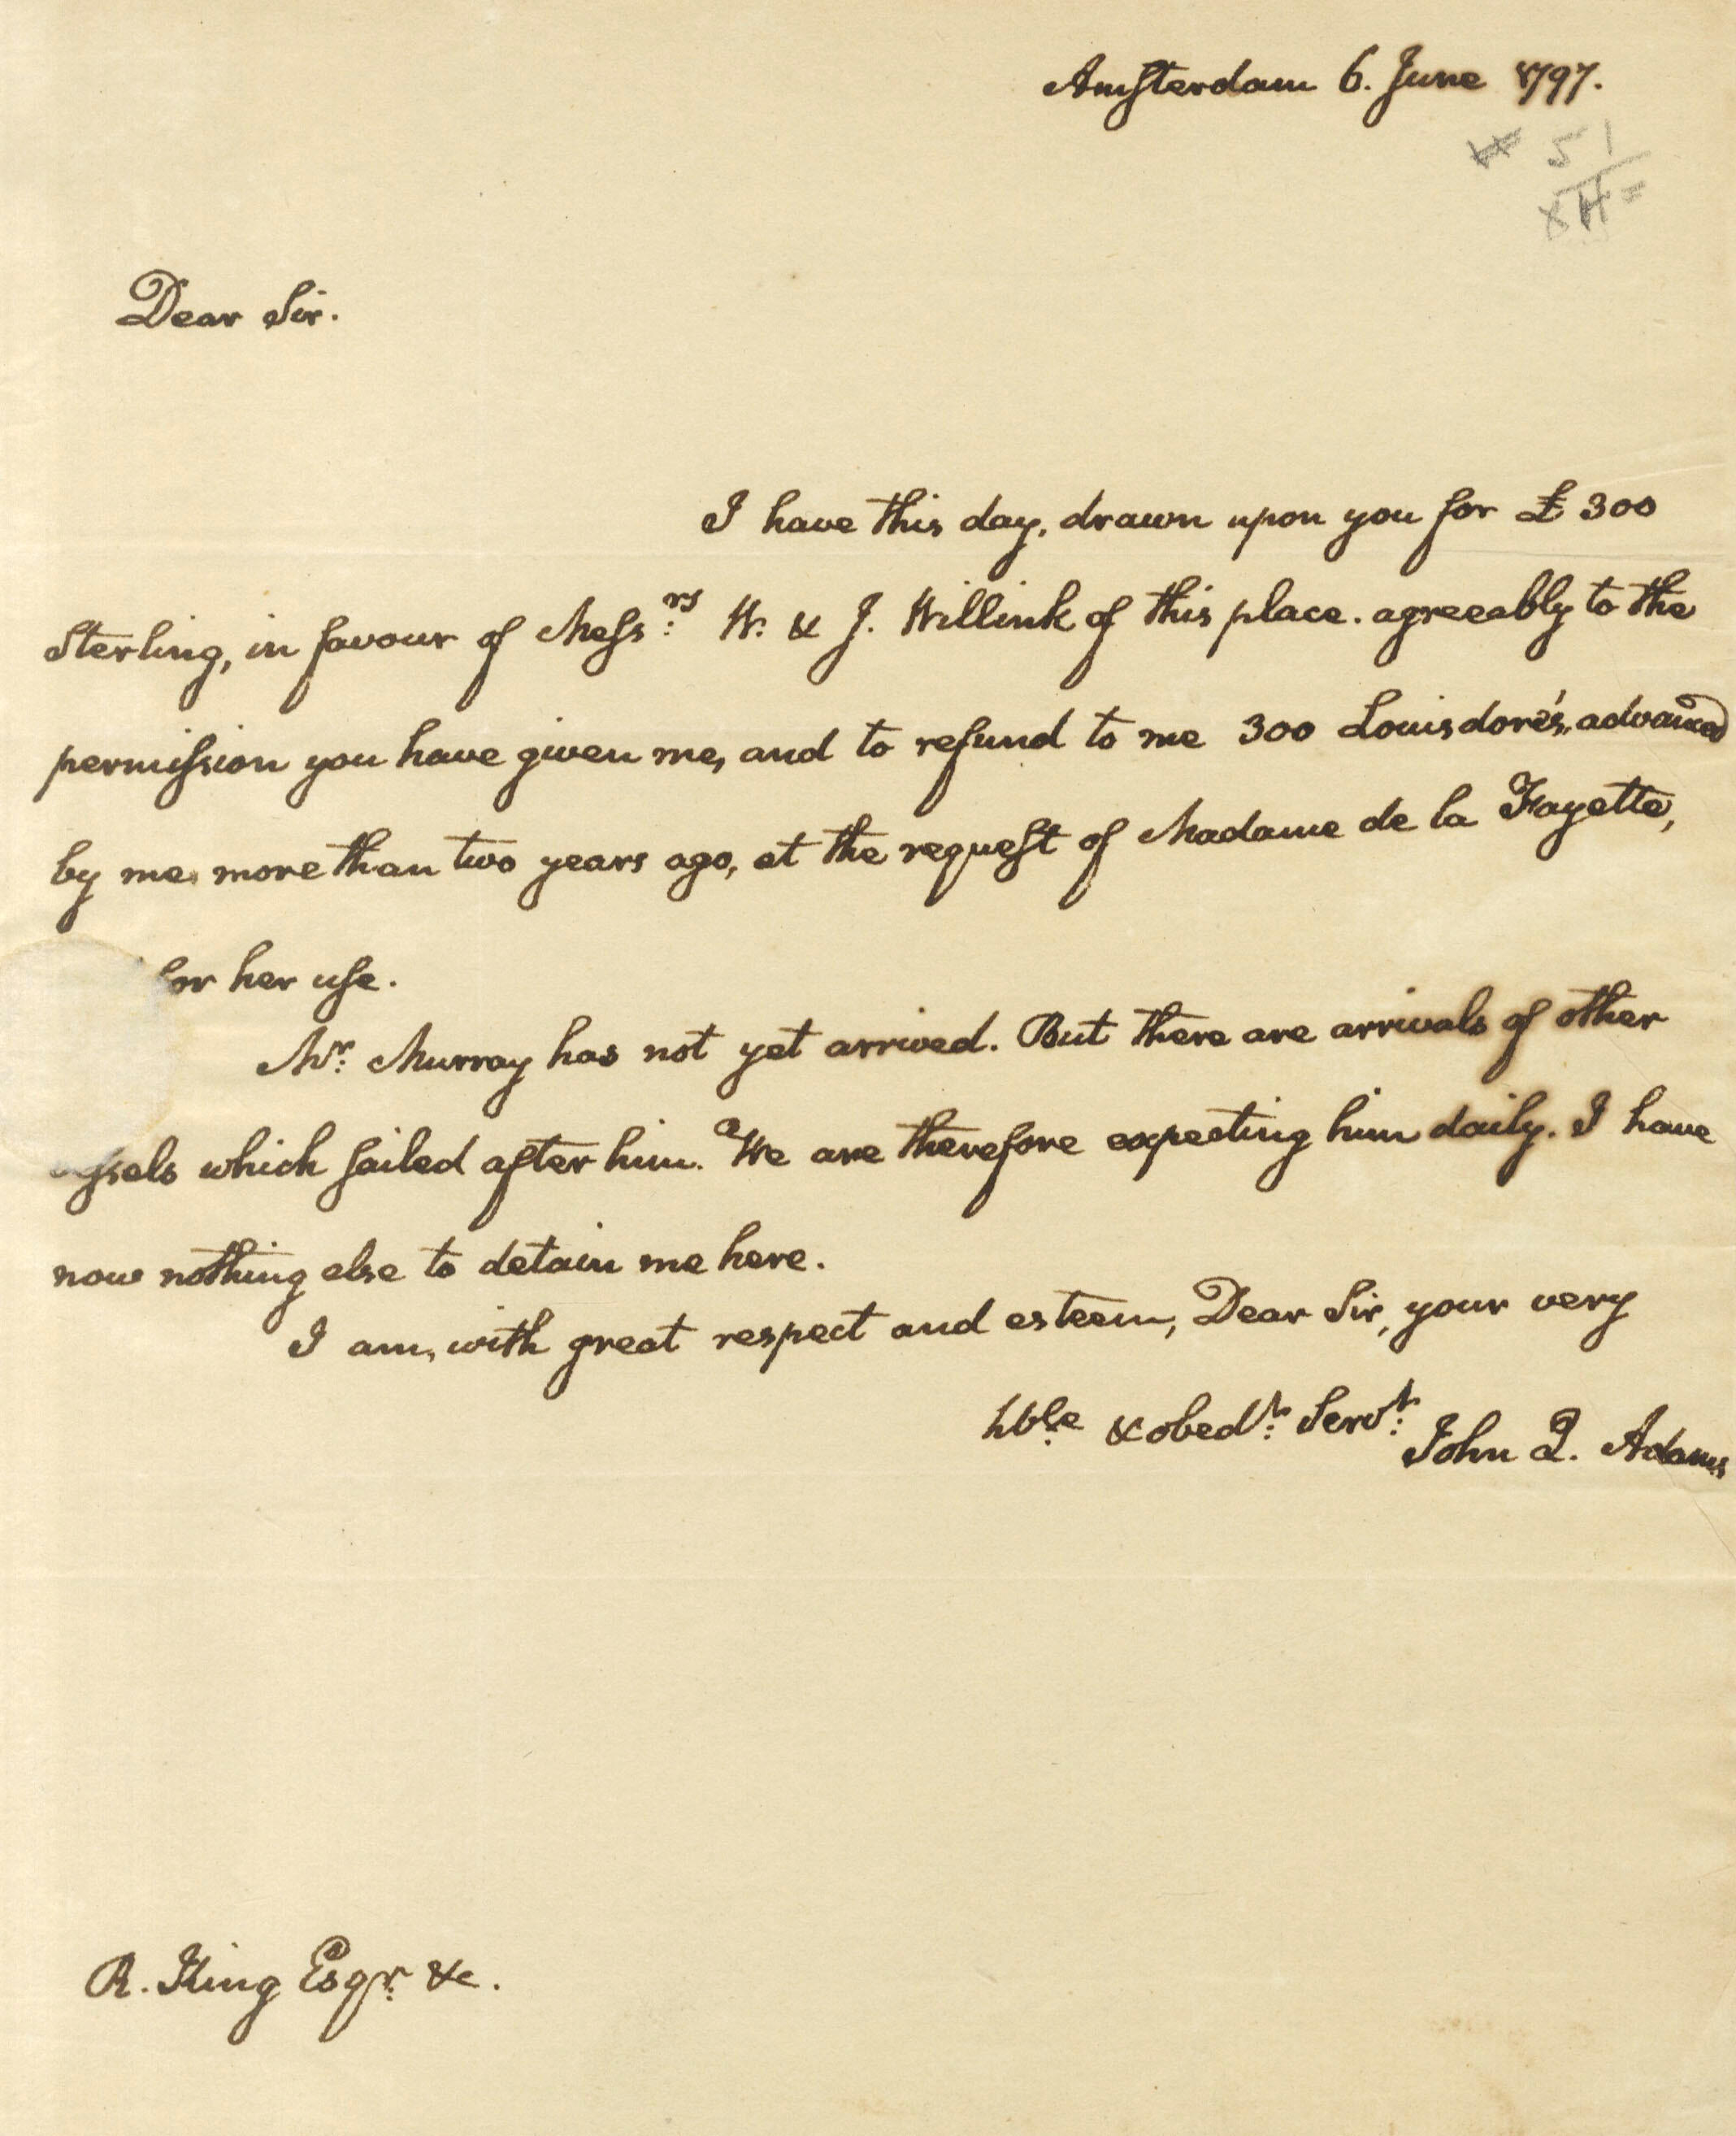 Amsterdam 6. June 1797.
51
Dear Sir.
I have this day, drawn upon you for £ 300
Sterling, in favour of Mess:rs W. & J. Willink of this place. agreeably to the
permission you have given me, and to refund to me 300 Louisdore's, advanced
by me more than two years ago, at the request of Madame de la Fayette,
for her use.
Mr: Murray has not yet arrived. But there are arrivals of other
vessels which sailed after him. We are therefore expecting him daily. I have
now nothing else to detain me here.
I am, with great respect and esteem, Dear Sir, your very
hble: & obedt: Servt:
John Q. Adams
R. King Esqr: &c.